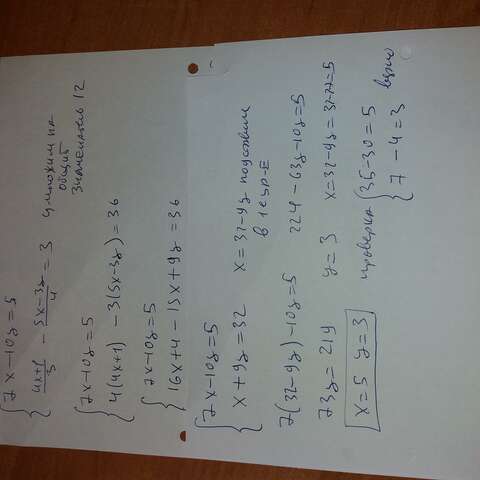 {7x-10y=5
{(4x+1)/3 - (5x-3y)/4 = 3 умножим на общий знаменатель 12
{7x-10y=5
{4(4x+1)-3(5x-3y)=36
{7x-10y=5
{16x+4-15x+9y=36
{7x-10y=5
{x+9y=32 x=32-9y подставим в 1 е ур-е
7(32-9y)-10y=5 224-63y-10y=5
73y=219 y=3 x=32-9y=32-27=5
x=5 y=3 проверка {35-30=5
{7-4=3 верно